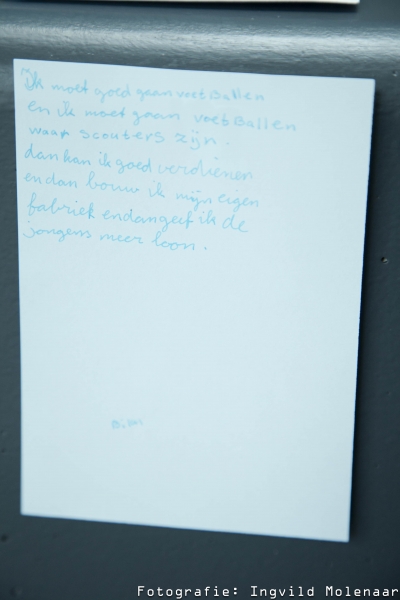 Ik moet goed gaan voetBallen
en ik moet gaan voetBallen
waar scouters zijn.
dan kan ik goed verdienen
en dan bouw ik mijn eigen
fabriek en dan geef ik de
jongens meer loon.
Fotografie: Ingvild Molenaar